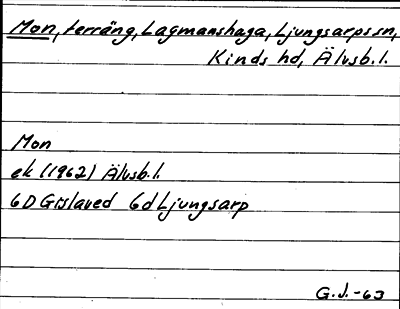 Mon, terräng, Lagmanshaga, Ljungsarps sn,
Kinds hd, Älvsb. l.
Mon
ek (1962) Älvsb. l.
6D Gislaved 6d Ljungsarp
G.J.-63